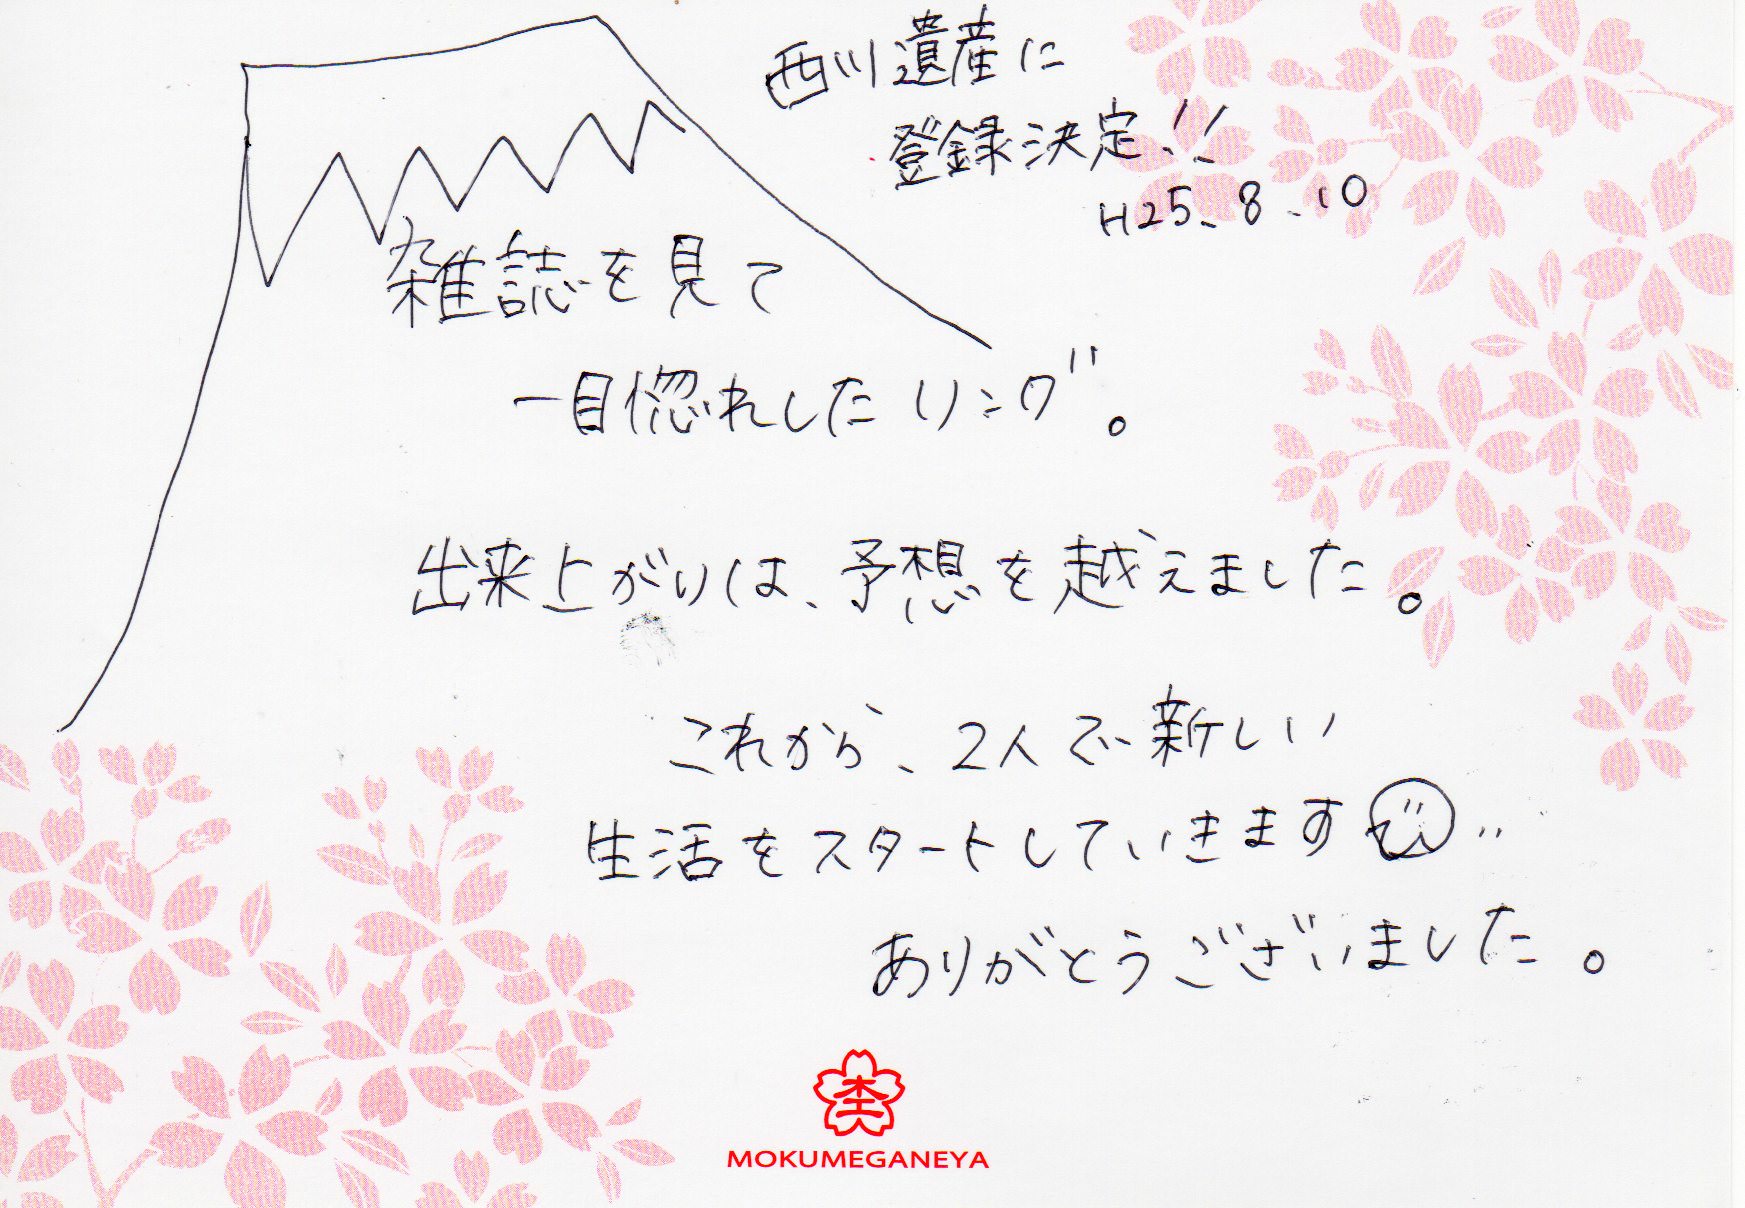 西川遺産に
登録決定!!
H25.8.10
雑誌を見て
一目惚れしたリング。
出来上がりは、予想を越えました。
これから、2人で新しい
生活をスタートしていきます
ありがとうございました。
MOKUMEGANEYA